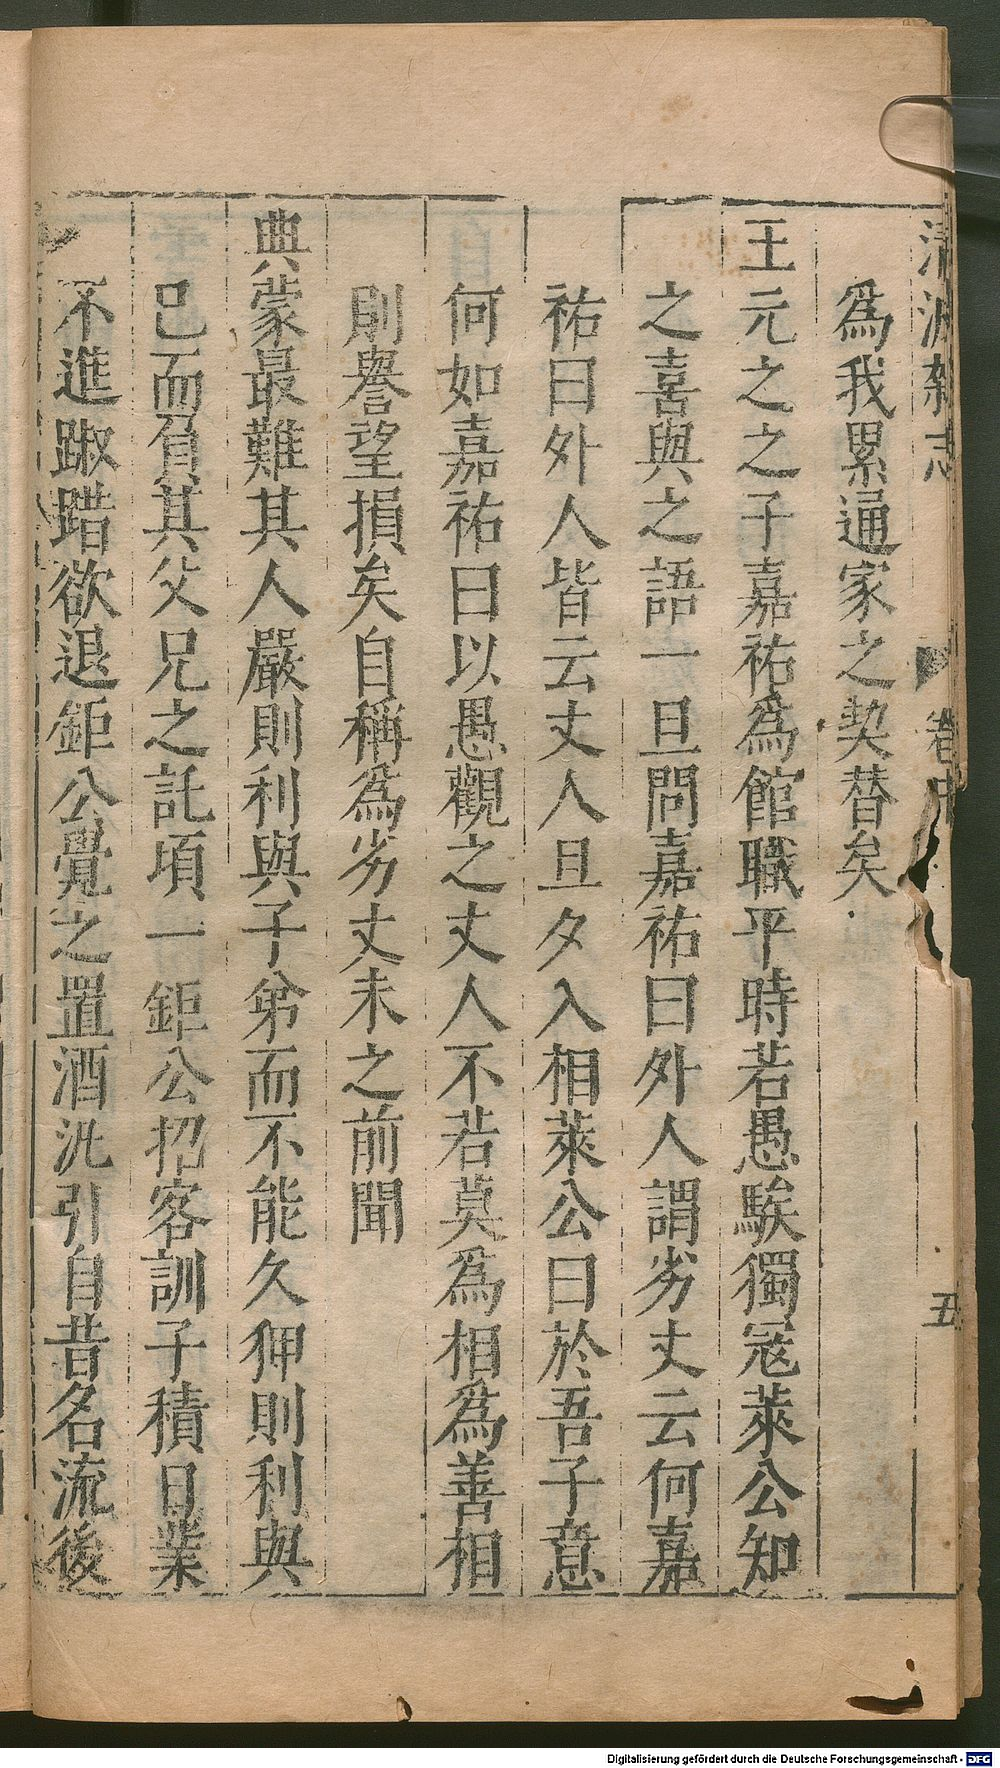 清波雜志 卷中 五
爲我累通家之契替矣
王元之之子嘉祐爲館職平時若愚騃獨寇萊公知
之喜與之語一旦問嘉祐曰外人謂劣丈云何嘉
祐曰外人皆云丈人旦夕入相萊公曰於吾子意
何如嘉祐曰以愚觀之丈人不若莫爲相爲善相
則譽望損矣自稱爲劣丈未之前聞
典蒙最難其人嚴則利與子弟而不能久狎則利與
已而負其父兄之託頃一鉅公招客訓子積日業
不進踧踖欲退鉅公覺之置酒泚引自昔名流後
Digitalisierung gefördert durch die Deutsche Forschungsgemeinschaft - DFG